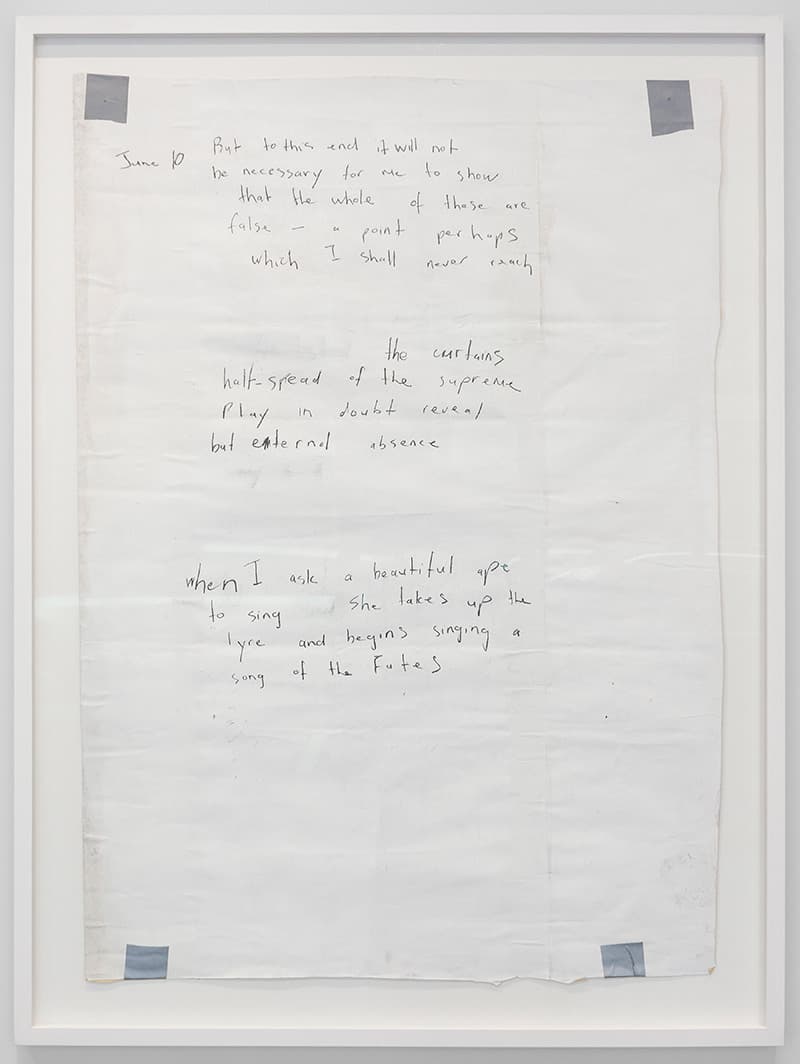 June 10 But to this end it will not
be necessary for me to show
that the whole of those are
false — a point perhaps
which I shall never reach
the curtains
half-spread of the supreme
Play in doubt reveal
but external absence
when I ask a beautiful ape
to sing she takes up the
lyre and begins singing a
song of the Futes